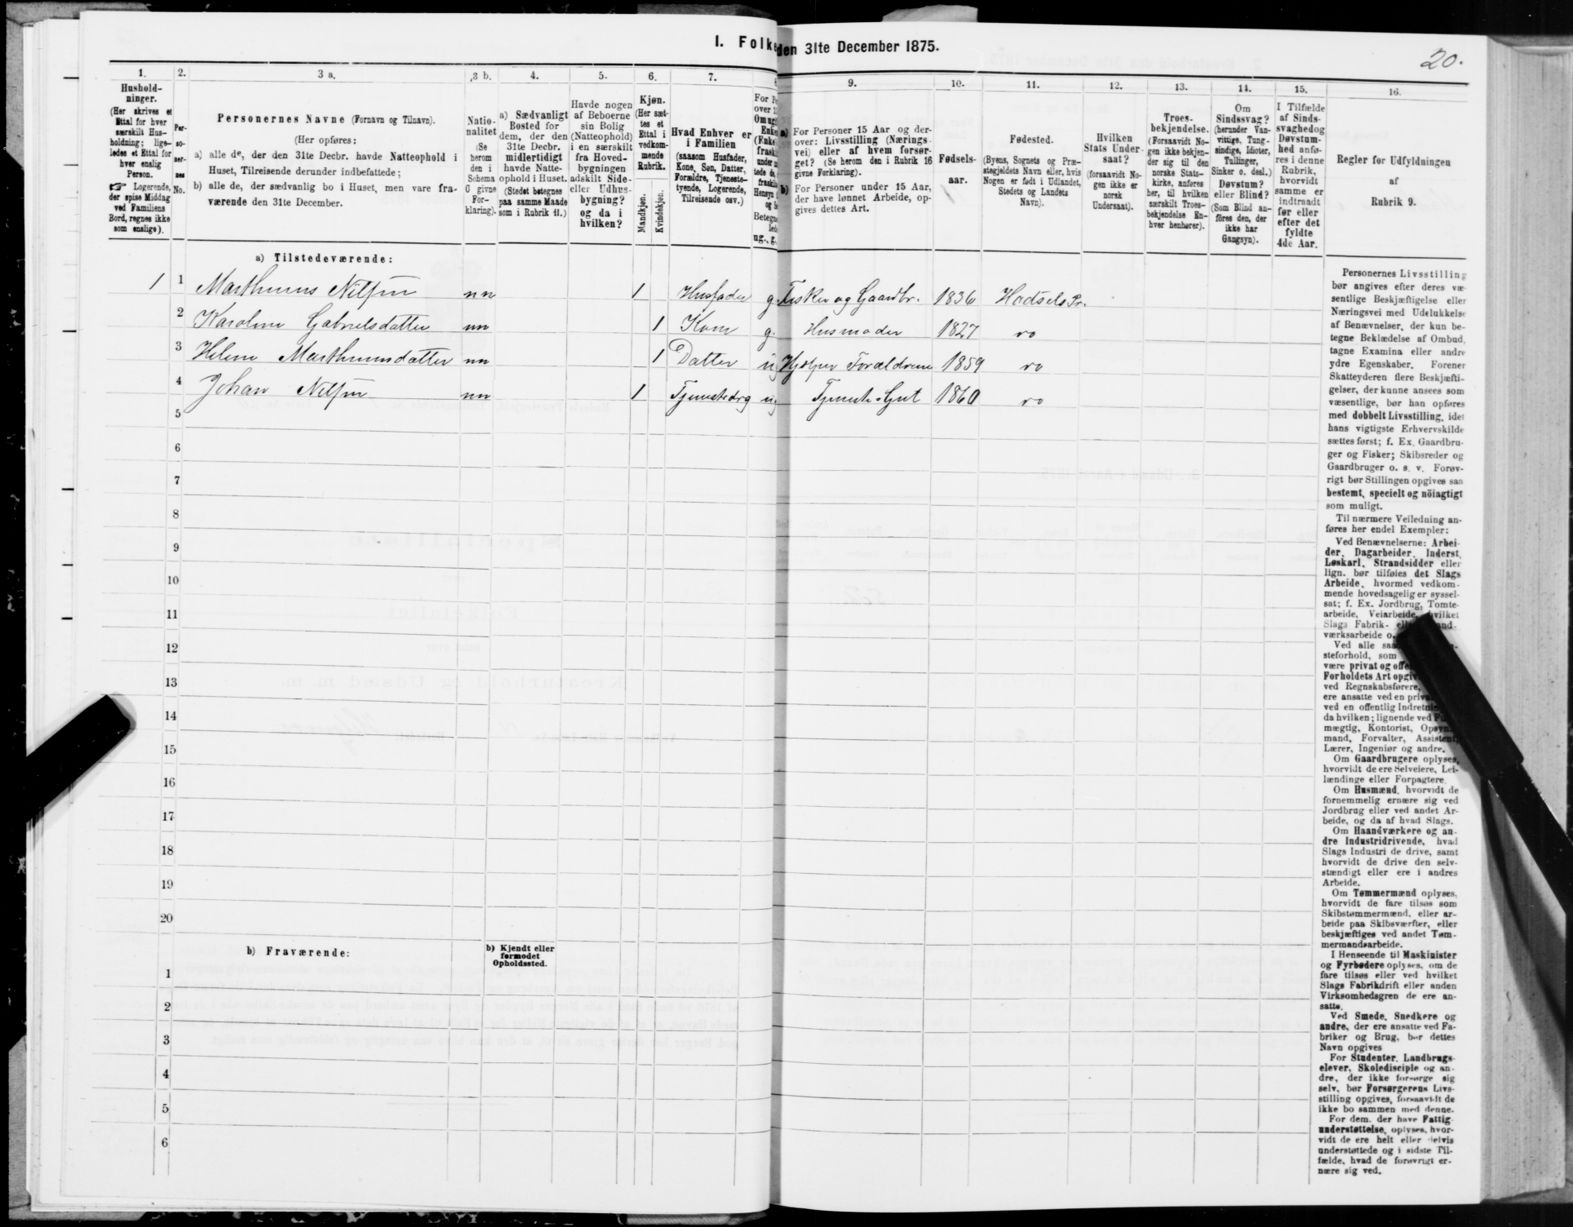 I. Folke
den 31te December 1875.
20.
1.
2.
3 a.
3 b.
4.
5.
6.
7.
9.
10.
11.
12.
13.
14.
15.
16.
Hushold-
ninger.
(Her skrives et
Ettal for hver
særskilt Hus-
holdning; lige-
ledes et Ettal for
hver enslig
Person.
☞ Logerende,
der spise Middag
ved Familiens
Bord, regnes ikke
som enslige).
Per-
so-
ner-
nes
No.
Personernes Navne (Fornavn og Tilnavn).
(Her opføres:
a) alle de, der den 31te Decbr. havde Natteophold i
Huset, Tilreisende derunder indbefattede;
b) alle de, der sædvanlig bo i Huset, men vare fra-
værende den 31te December.
Natio-
nalitet
(Se
herom
den i
Schema
G givne
For-
klaring).
a) Sædvanligt
Bosted for
dem, der den
31te Decbr.
midlertidigt
havde Natte-
ophold i Huset.
(Stedet betegnes
paa samme Maade
som i Rubrik 11.)
Havde nogen
af Beboerne
sin Bolig
(Natteophold)
i en særskilt
fra Hoved-
bygningen
adskilt Side-
eller Udhus-
bygning?
og da i
hvilken?
Kjøn.
(Her sæt-
tes et
Ettal i
vedkom-
mende
Rubrik.
Mandkjøn.
Kvindekjøn.
Hvad Enhver er
i Familien
(saasom Husfader,
Kone, Søn, Datter,
Forældre, Tjeneste-
tyende, Logerende,
Tilreisende osv.)
a) For Personer 15 Aar og der-
over: Livsstilling (Nærings-
vei) eller af hvem forsør-
get? (Se herom den i Rubrik 16
givne Forklaring).
b) For Personer under 15 Aar,
der have lønnet Arbeide, op-
gives dettes Art.
Fødsels-
aar.
Fødested.
(Byens, Sognets og Præ-
stegjeldets Navn eller, hvis
Nogen er født i Udlandet,
Stedets og Landets
Navn).
Hvilken
Stats Under-
saat?
(forsaavidt No-
gen ikke er
norsk
Undersaat).
Troes-
bekjendelse.
(Forsaavidt No-
gen ikke bekjen-
der sig til den
norske Stats-
kirke, anføres
her, til hvilken
særskilt Troes-
bekjendelse En-
hver henhører).
Om
Sindssvag?
(herunder Van-
vittige, Tung-
sindige, Idioter,
Tullinger,
Sinker o. desl.)
Døvstum?
eller Blind?
(Som Blind an-
føres den, der
ikke har
Gangsyn).
I Tilfælde
af Sinds-
svaghed og
Døvstum-
hed anfø-
res i denne
Rubrik,
hvorvidt
samme er
indtraadt
før eller
efter det
fyldte
4de Aar.
Regler for Udfyldningen
af
Rubrik 9.
a) Tilstedeværende:
1 1 Marthinus Nilsen nn 1 Husfader g. Fisker og Gaardbr. 1836 Hadsels Pr.
2 Karoline Gabrielsdatter nn 1 Kone g. Husmoder 1827 do
3 Heline Marthinusdatter nn 1 Datter ug Hjelper Forældrene 1859 do
4 Johan Nilsen nn 1 Tjenestedrg ug Tjeneste-Gut 1860 do
5
6
7
8
9
10
11
12
13
14
15
16
17
18
19
20
b) Fraværende:
b) Kjendt eller
formodet
Opholdssted.
1
2
3
4
5
6
Personernes Livsstilling
bør angives efter deres væ-
sentlige Beskjæftigelse eller
Næringsvei med Udelukkelse
af Benævnelser, der kun be-
tegne Beklædelse af Ombud,
tagne Examina eller andre
ydre Egenskaber. Forener
Skatteyderen flere Beskjæfti-
gelser, der kunne ansees som
væsentlige, bør han opføres
med dobbelt Livsstilling, idet
hans vigtigste Erhvervskilde
sættes først; f. Ex. Gaardbru-
ger og Fisker; Skibsreder og
Gaardbruger o. s. v. Forøv-
rigt bør Stillingen opgives saa
bestemt, specielt og nöiagtigt
som muligt.
Til nærmere Veiledning an-
føres her endel Exempler:
Ved Benævnelserne: Arbei-
der, Dagarbeider, Inderst,
Løskarl, Strandsidder eller
lign. bør tilføies det Slags
Arbeide, hvormed vedkom-
mende hovedsagelig er syssel-
sat; f. Ex. Jordbrug, Tomte-
arbeide, Veiarbeide, hvilket
Slags Fabrik-
værksarbeide o.
Ved alle
steforhold, som
være privat og
Forholdets Art
ved Regnskabsførere,
ere ansatte ved en
ved en offentlig
da hvilken; lignende ved
mægtig, Kontorist,
mand, Forvalter, Assistent,
Lærer, Ingeniør og andre.
Om Gaardbrugere oplyses,
hvorvidt de ere Selveiere, Lei-
lændinge eller Forpagtere.
Om Husmænd, hvorvidt de
fornemmelig ernære sig ved
Jordbrug eller ved andet Ar-
beide, og da af hvad Slags.
Om Haandværkere og an-
dre Industridrivende, hvad
Slags Industri de drive, samt
hvorvidt de drive den selv-
stændigt eller ere i andres
Arbeide.
Om Tømmermænd oplyses,
hvorvidt de fare tilsøs som
Skibstømmermænd, eller ar-
beide paa Skibsværfter, eller
beskjæftiges ved andet Tøm-
mermandsarbeide.
I Henseende til Maskinister
og Fyrbødere oplyses, om de
fare tilsøs eller ved hvilket
Slags Fabrikdrift eller anden
Virksomhedsgren de ere an-
satte.
Ved Smede, Snedkere og
andre, der ere ansatte ved Fa-
briker og Brug, bør dettes
Navn opgives
For Studenter, Landbrugs-
elever, Skoledisciple og an-
dre, der ikke forsørge sig
selv, bør Forsørgerens Livs-
stilling opgives, forsaavidt de
ikke bo sammen med denne.
For dem, der have Fattig-
understøttelse, oplyses, hvor-
vidt de ere helt eller delvis
understøttede og i sidste Til-
fælde, hvad de forøvrigt er-
nære sig ved.